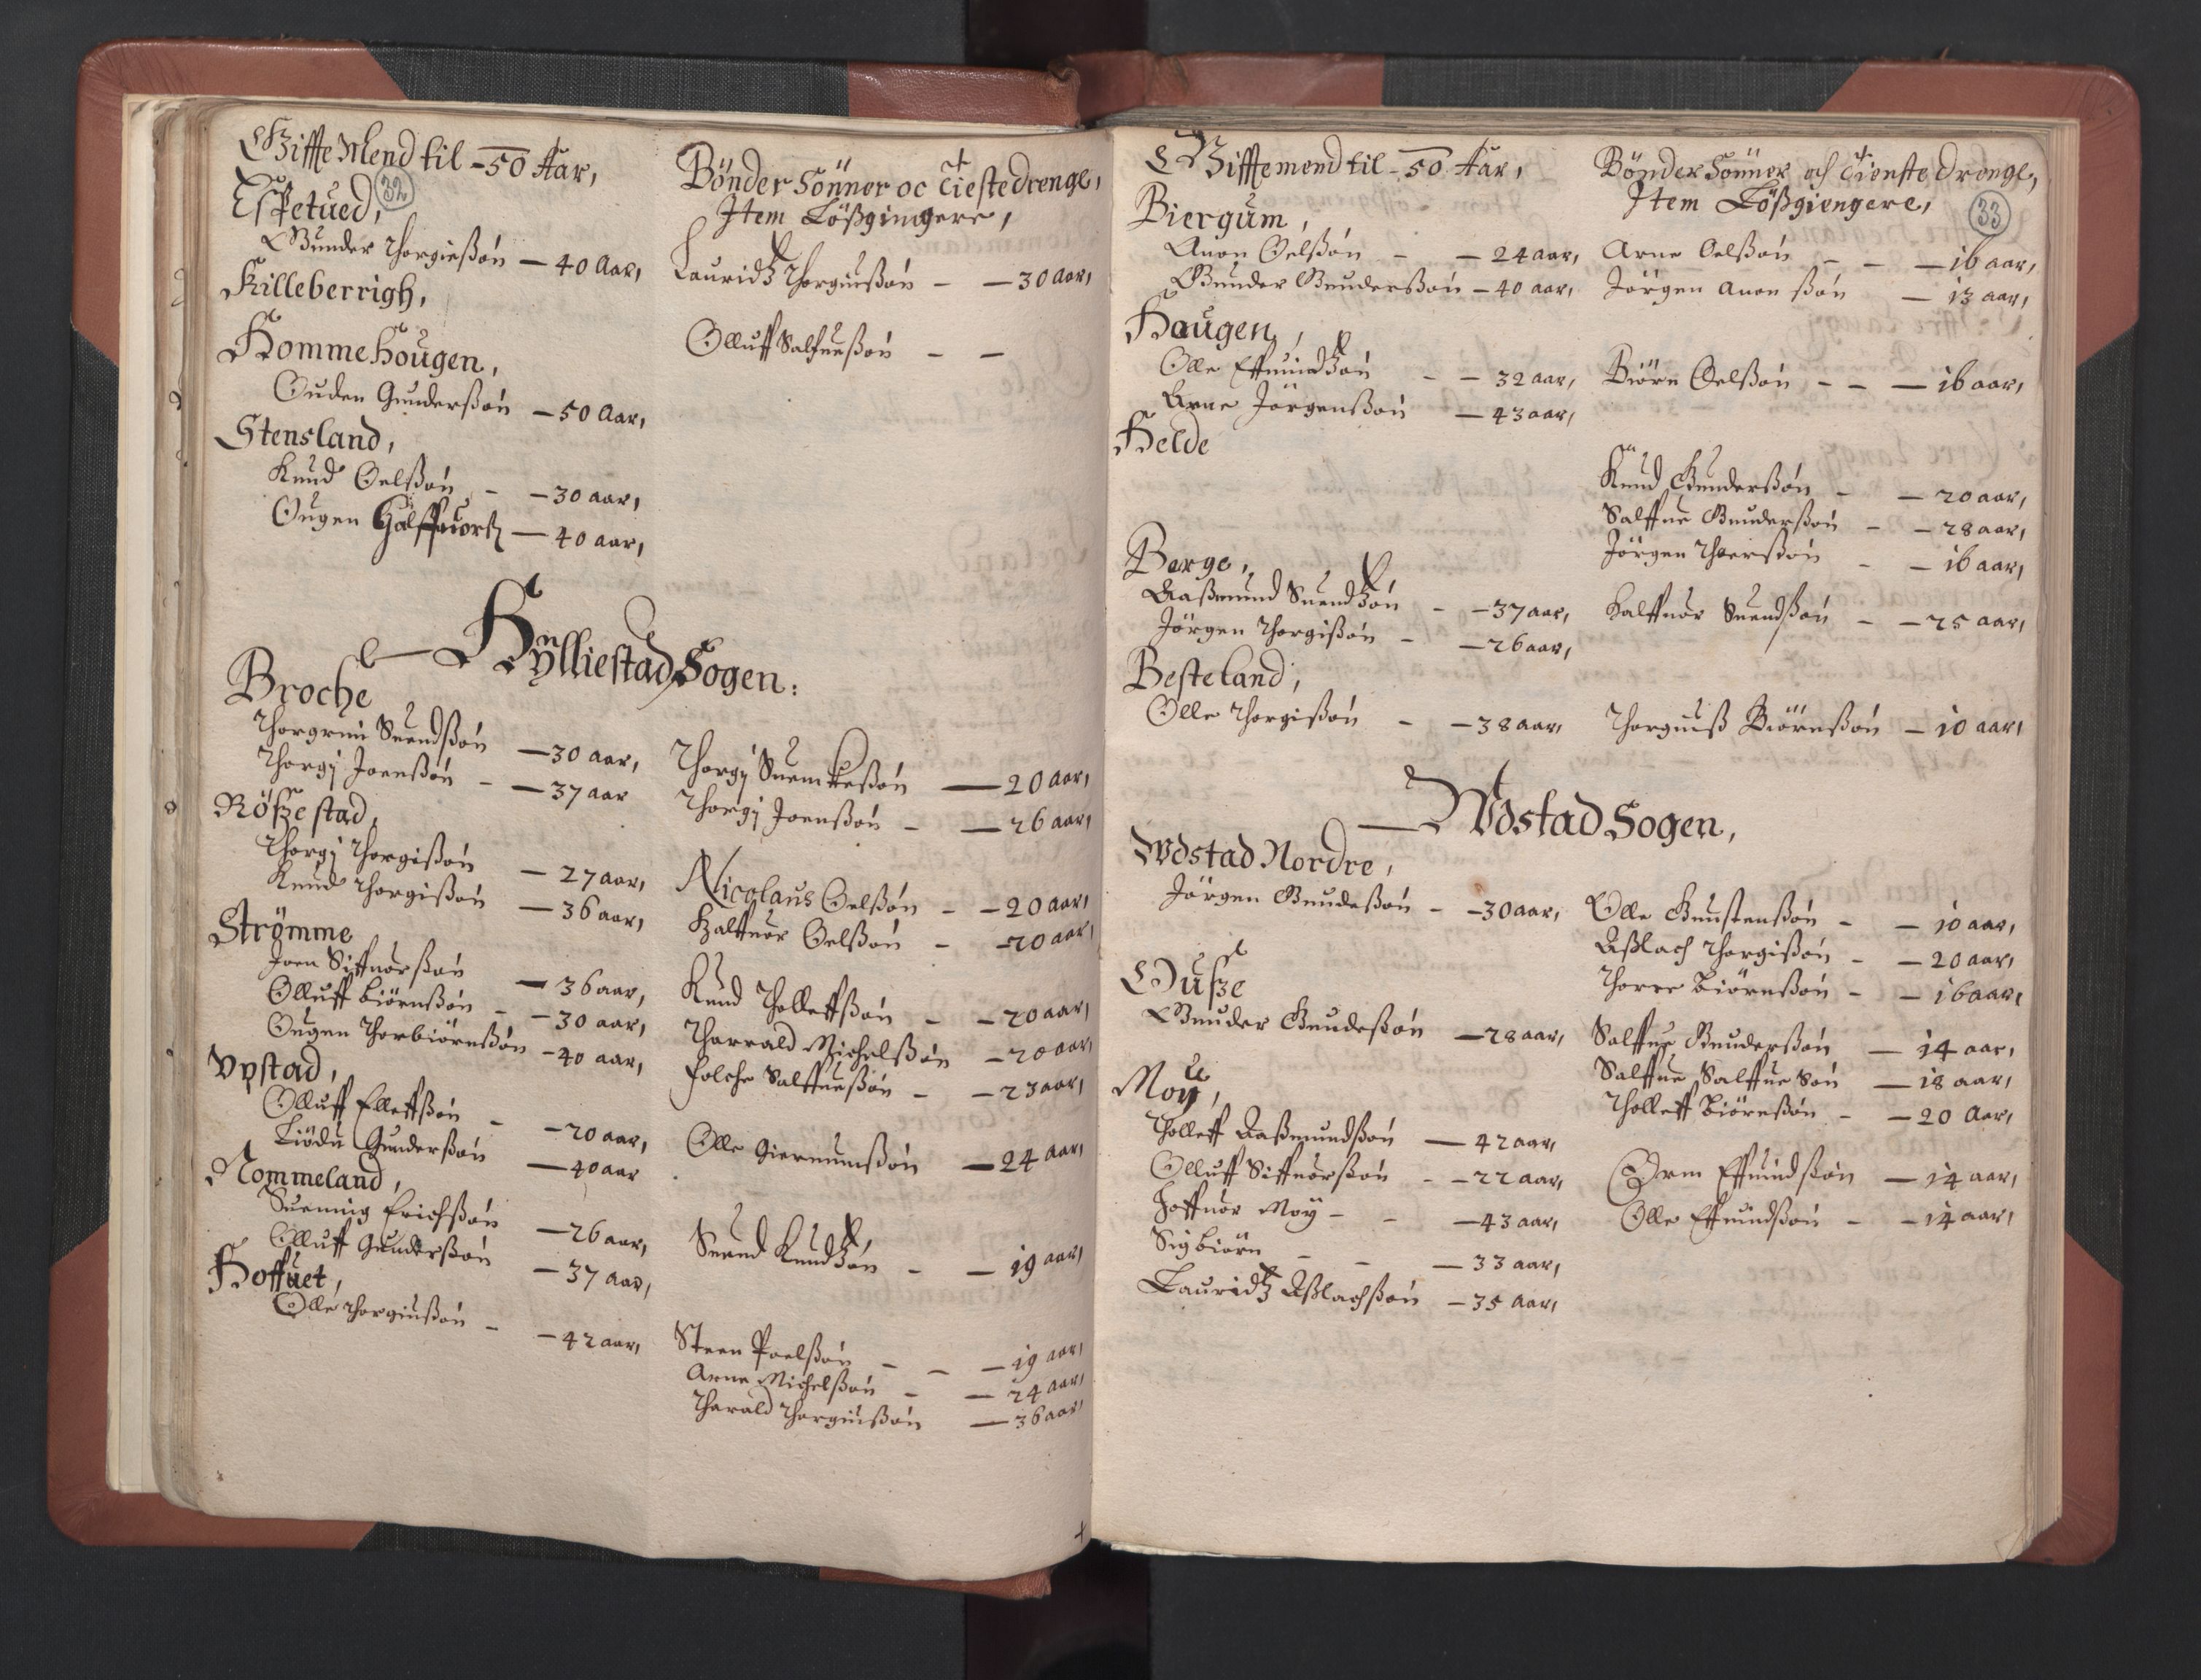 Giffte Mend til - 50 Aar,
32
Espetued,
Gunder Thorgießøn — 40 Aar,
Killeberrigh,
Homme hougen,
Ouden Gunderßøn — 50 Aar,
Stensland,
Knud Oelßøn - — 30 aar,
Ougen Halffuorß — 40 aar,
Bönder Sönner oc tieste drenge,
Item Lößgiengere,
Lauridtz Thorgiusßøn - — 30 aar,
Olluff Salfueßøn - -
Hylliestad Sogen:
Broche
Thorgrim Suendßøn — 30 aar,
Thorgj Joenßøn - — 37 aar
Rößestad,
Thorgj Thorgißøn — 27 aar,
Knud Thorgißøn — 36 aar,
Strømme
Joen Siffuorßøn — 36 aar,
Olluff biörnßøn - — 30 aar,
Ougen Thorbiörnßøn - 40 aar,
Vpstad,
Olluff Elleffßøn - — 20 aar,
Liödu Gunderßøn — 40 aar
Nommeland,
Suening Erichßøn — 26 aar,
Olluff Gunderßøn — 37 aar,
Hoffuet,
Olle Thorgiusßøn - — 42 aar,
Thorgj Suenckeßøn — 20 aar,
Thorgj Joenßøn - — 26 aar,
Nicolaus Oelßøn - — 20 aar,
Halffuor Oelßøn - — 20 aar,
Knud Tholleffßøn - — 20 aar,
Tharrald Michelßøn — 20 aar,
Folche Salffueßøn - — 23 aar,
Olle Giermunßøn — 24 aar,
Suend Knudtzøn - — 19 aar,
Steen Poelßøn - - — 19 aar,
Arne Michelßøn - — 24 aar,
Tharald Thorgiusßøn — 36 aar,
Giffte mend til - 50 Aar,
Biergum,
Anon Oelßøn - — 24 aar,
Gunder Gunderßøn — 40 aar,
Haugen,
Olle Effuindtzøn - — 32 aar,
Arne Jörgenßøn — 43 aar,
Helde
Berge,
Aaßmund Suendtzøn - — 37 aar,
Jörgen Thorgißøn - — 26 aar,
Besteland,
Olle Thorgißøn - — 38 aar,
Bönder Sönner och tienste drenge,
Item Lößgiengere,
33
Arne Oelßøn - - — 16 aar,
Jörgen Anon ßøn — 13 aar,
Biörn Oelßøn - - — 16 aar,
Knud Gunderßøn - — 20 aar,
Salffue Gunderßøn - — 28 aar,
Jörgen Thoerßøn - — 16 aar,
Halffuor Suendßøn - — 25 aar,
Thorguuß Biörnßøn — 10 aar,
Wdstad Sogen,
Wdstad Nordre,
Jörgen Gundeßøn - — 30 aar,
Ouße
Gunder Gundeßøn — 28 aar,
Moy,
Tholleff Aaßmundßøn — 42 aar,
Olluff Siffuorßøn - — 22 aar,
Hoffuor Moy - - — 43 aar,
Sigbiörn - - — 33 aar,
Lauridtz Aßlachßøn — 35 aar,
Olle Gunstenßøn - — 10 aar,
Aßlach Thorgißøn - — 20 aar,
Thorre biörnßøn - — 16 aar,
Salffue Gunderßøn — 14 aar,
Salffue Salffue Søn — 18 aar,
Tholleff biörnßøn - — 20 Aar,
Orm Effuindßøn — 14 aar,
Olle Effuindßøn - — 14 aar,